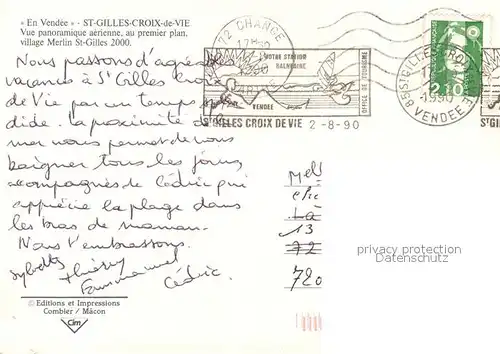 « En Vendée » - ST-GILLES-CROIX-de-VIE
Vue panoramique aérienne, au premier plan,
village Merlin St-Gilles 2000.
Nous passons d'agréables
vacances à St Gilles Croix
de Vie par un temps splen
dide. la proximité de la
mer nous permet de nous
baigner tous les jours
accompagnés de Cédric qui
apprécie la plage dans
les bras de maman.
Nous t'embrassons.
Sylvette Thierry
Emmanuel
Cédric.
© Editions et Impressions
Combier / Mâcon
Cim
72 CHANGE
VOTRE STATION
BALNEAIRE
VENDEE
OFFICE DE TOURISME
ST GILLES CROIX DE VIE 2-8-90
85 ST GILLES CROIX
1990
VENDEE
2,10
Melle
che
Là
13
72
720
privacy protection